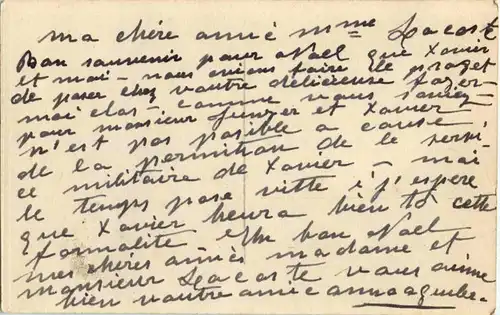 ma chère amie mme Lacoste
Bon souvenir pour Noel que Xavier
et moi – nous avions faire le projet
de paser chez vautre délicieuse foyer
mai elas – comme vous saviez
pour monsieur et Xavier
n'est pas posible a cause
de la permition de le servi-
ce militaire de Xavier – mai
le temps pase vitte i j'espere
que Xavier heura bien tô cette
formalité Un bon Noel
mes chères amiès madame et
monsieur Lacoste vous aime
bien vautre amie